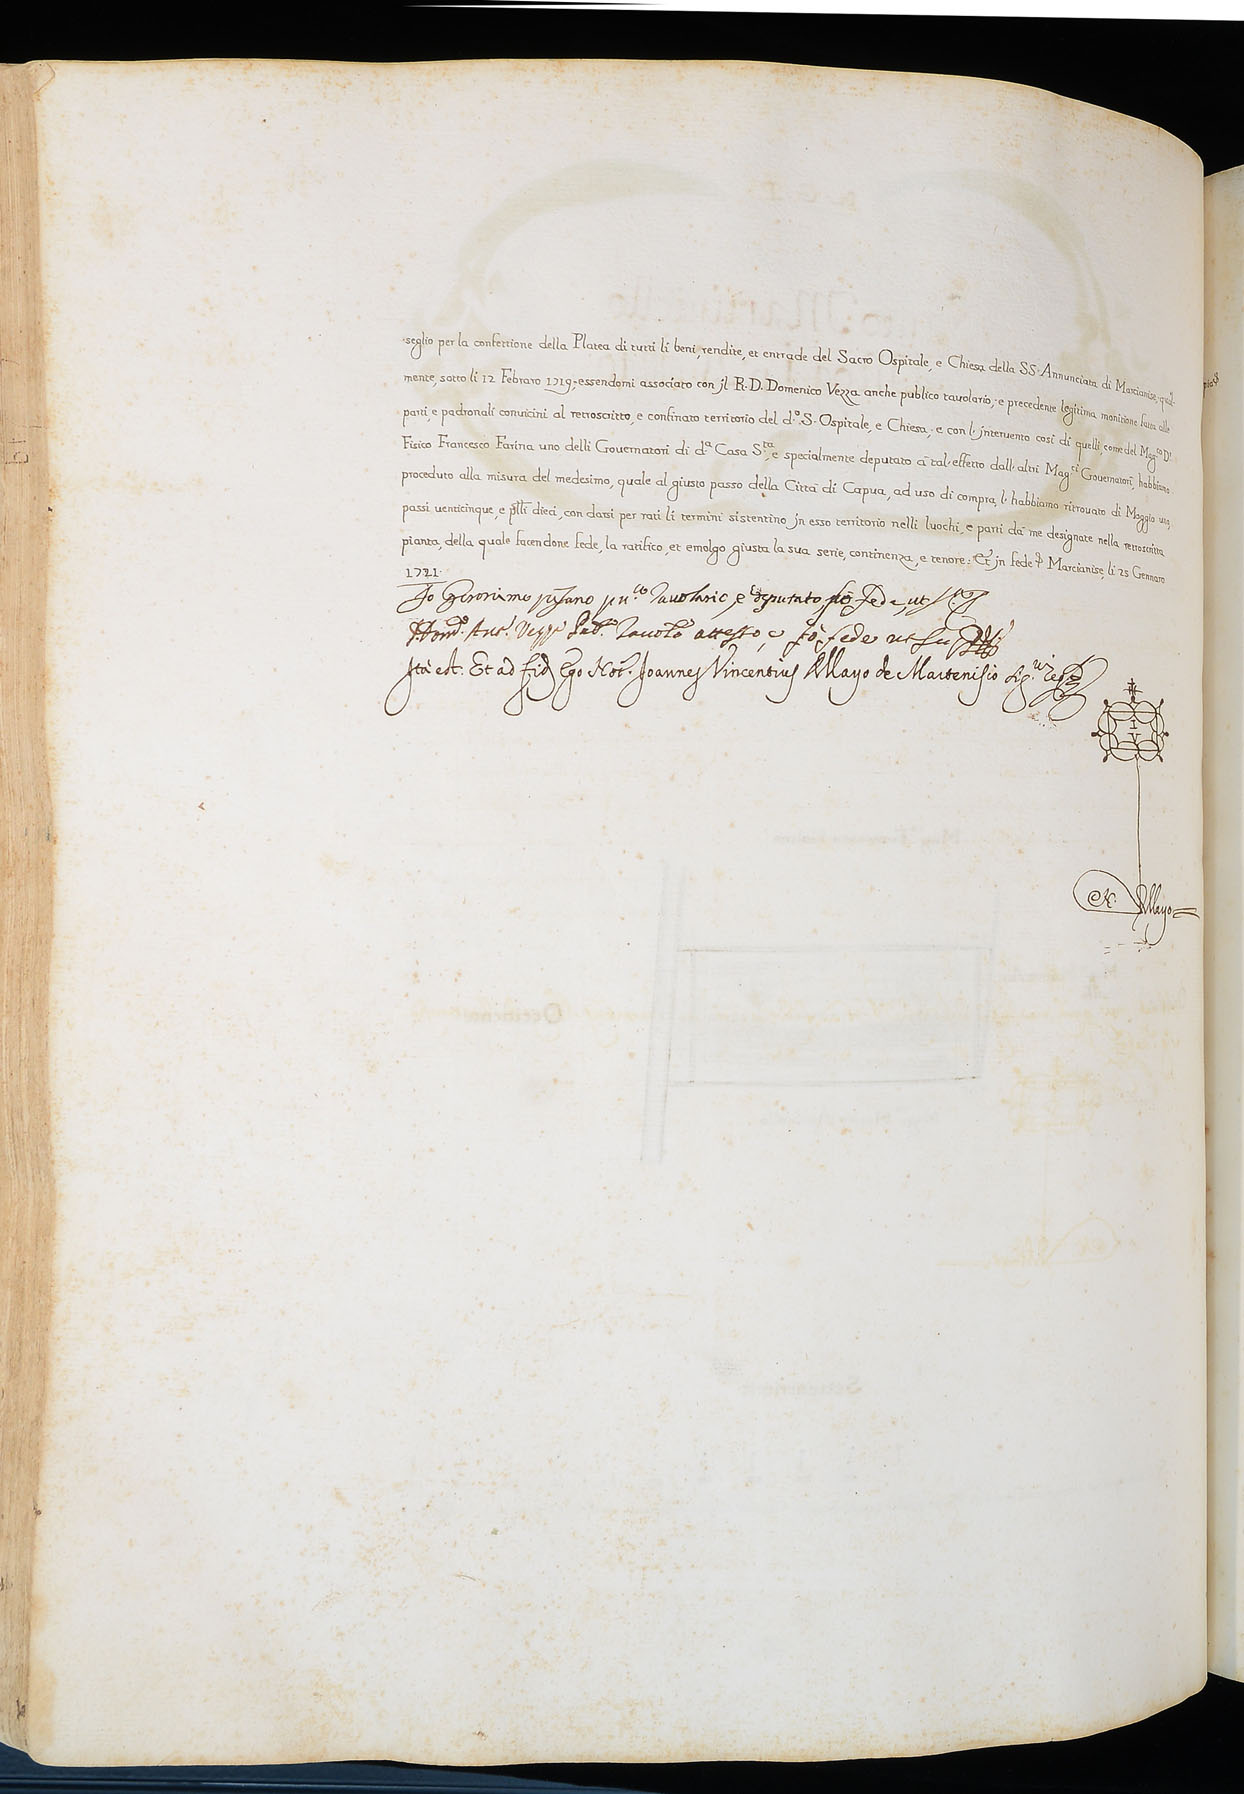 seglio per la confettione della Platea di tutti li beni, rendite, et entrade del Sacro Ospitale, e Chiesa della SS. Annunciata di Marcianise, qual-
mente, sotto li 12 Febraro 1719, essendomi associato con jl R.D. Domenico Vezza anche publico tavolario, e precedente legitima monitione fatta alle
parti, e padronali convicini al retroscritto, e confinato territorio del d.º S. Ospitale, e Chiesa, e con l'jntervento così di quelli, come del Mag.co D.r
Fisico Francesco Farina uno delli Governatori di d.ª Casa S.ta, e specialmente deputato à tal' effetto dall' altri Mag.ci Governatori, habbiamo
proceduto alla misura del medesimo, quale al giusto passo della Città di Capua, ad uso di compra, l' habbiamo ritrovato di Moggio uno,
passi venticinque, e dieci, con darsi per rati li termini sistentino jn esso territorio nelli luochi, e parti da me designate nella retroscritta
pianta, della quale facendone fede, la ratifico, et emolgo giusta la sua serie, continenza, e tenore: Et jn fede Marcianise, li 25 Gennaro
1721.
Io Geronimo pu.co Tavolario, e deputato, fò fede, ut
Ant.º Vezza Pub.º Tavol.º attesto, e fò fede ut
Ita est. Et ad fid. Ego Not. Joannes Vincentius de Mayo de Martenisio
I
V
N. de Mayo